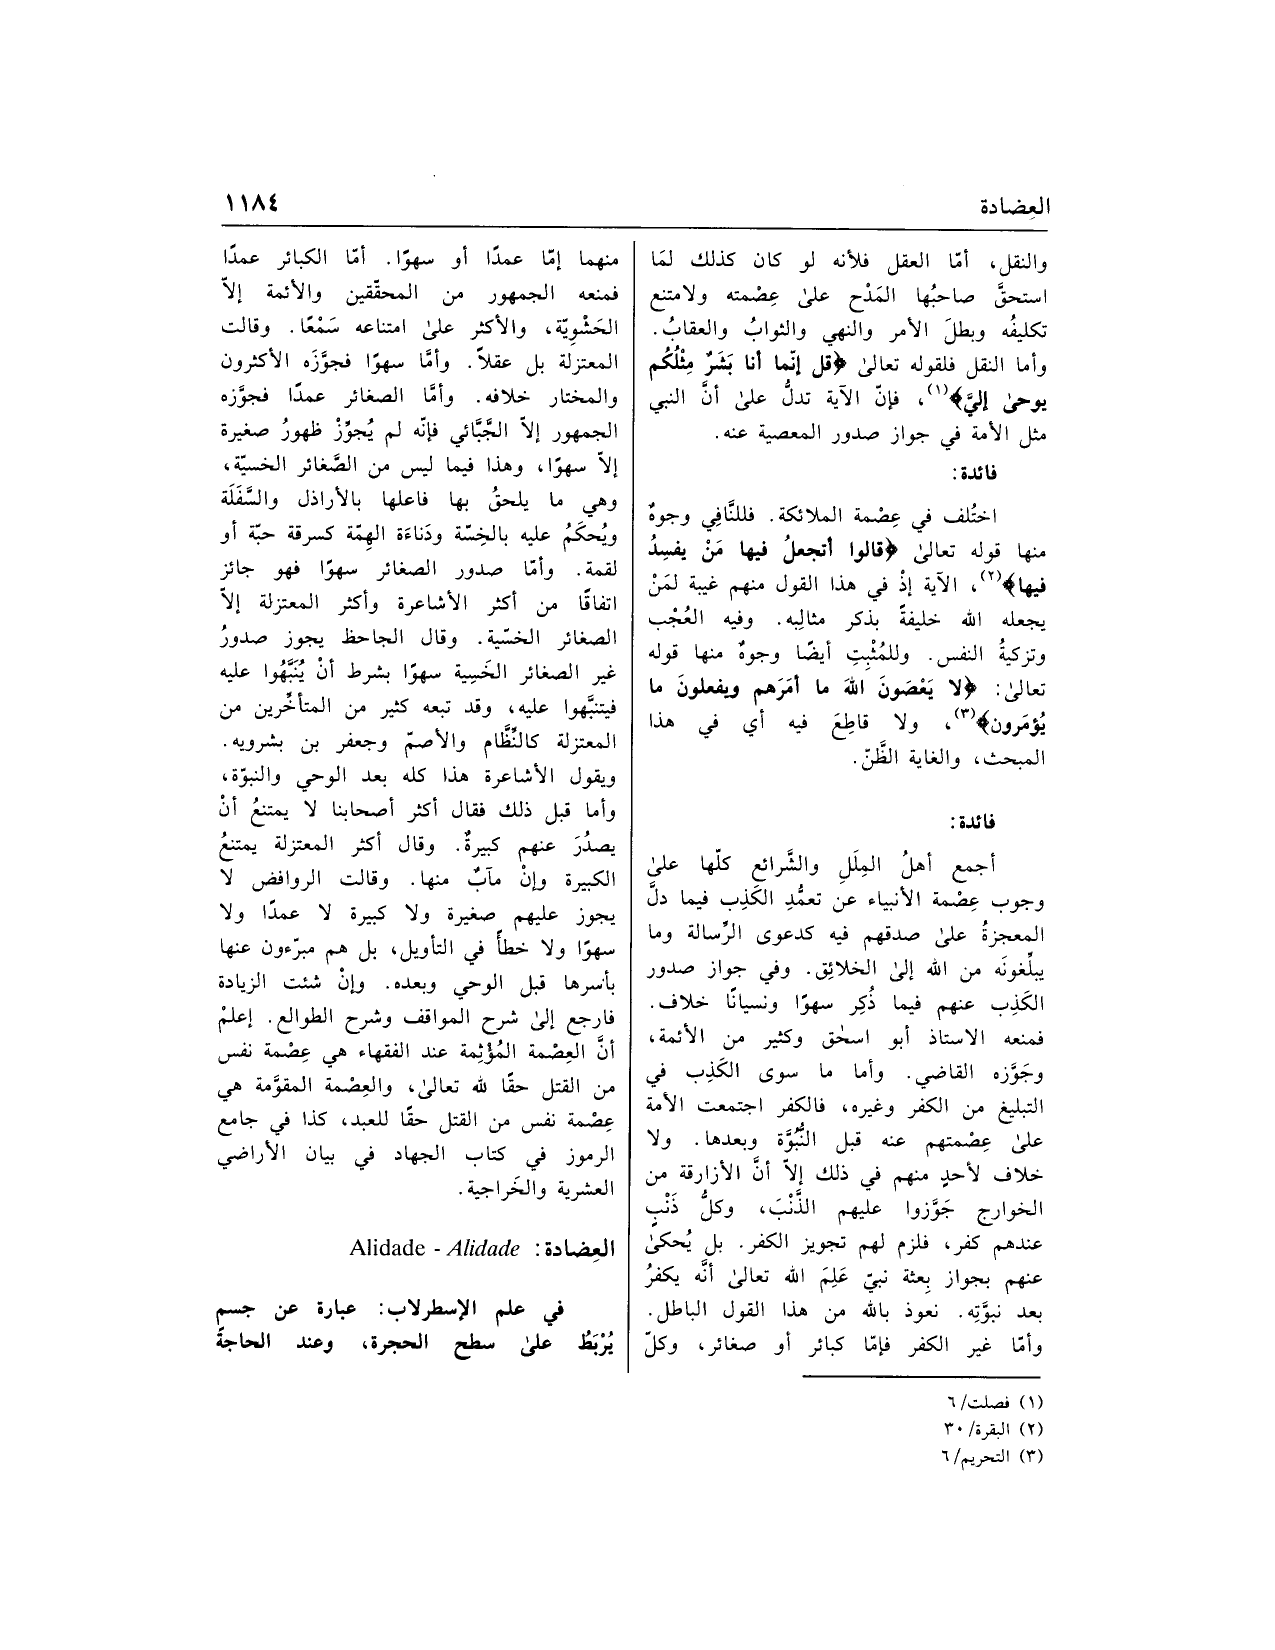 العِضادة
١١٨٤
والنقل، أمّا العقل فلأنه لو كان كذلك لمَا
استحقَّ صاحبُها المَدْح علىٰ عِصْمته ولامتنع
تكليفُه وبطلَ الأمر والنهي والثوابُ والعقابُ.
وأما النقل فلقوله تعالىٰ ﴿قل إنّما أنا بَشَرٌ مِثْلُكُم
يوحىٰ إليَّ﴾(١)، فإنّ الآية تدلُّ علىٰ أنَّ النبي
مثل الأمة في جواز صدور المعصية عنه.
فائدة:
اختُلف في عِصْمة الملائكة. فللنَّافِي وجوهٌ
منها قوله تعالىٰ ﴿قالوا أتجعلُ فيها مَنْ يفسِدُ
فيها﴾(٢)، الآية إذْ في هذا القول منهم غيبة لمَنْ
يجعله الله خليفةً بذكر مثالِبِه. وفيه العُجْب
وتزكيةُ النفس. وللمُثْبِتِ أيضًا وجوهٌ منها قوله
تعالىٰ: ﴿لا يَعْصَونَ اللهَ ما أمَرَهم ويفعلونَ ما
يُؤمَرون﴾(٣)، ولا قاطِعَ فيه أي في هذا
المبحث، والغاية الظَّنّ.
فائدة:
أجمع أهلُ المِلَلِ والشَّرائع كلّها علىٰ
وجوب عِصْمة الأنبياء عن تعمُّدِ الكَذِب فيما دلَّ
المعجزةُ علىٰ صدقهم فيه كدعوى الرِّسالة وما
يبلِّغونَه من الله إلىٰ الخلائِق. وفي جواز صدور
الكَذِب عنهم فيما ذُكِر سهوًا ونسيانًا خلاف.
فمنعه الاستاذ أبو اسحٰق وكثير من الأئمة،
وجَوَّزه القاضي. وأما ما سوى الكَذِب في
التبليغ من الكفر وغيره، فالكفر اجتمعت الأمة
علىٰ عِصْمتهم عنه قبل النُّبُوَّة وبعدها. ولا
خلاف لأحدٍ منهم في ذلك إلاّ أنَّ الأزارقة من
الخوارج جَوَّزوا عليهم الذَّنْبَ، وكلُّ ذَنْبٍ
عندهم كفر، فلزم لهم تجويز الكفر. بل يُحكىٰ
عنهم بجواز بِعثة نبيّ عَلِمَ الله تعالىٰ أنَّه يكفرُ
بعد نبوَّتِه. نعوذ بالله من هذا القول الباطل.
وأمّا غير الكفر فإمّا كبائر أو صغائر، وكلّ
منهما إمّا عمدًا أو سهوًا. أمّا الكبائر عمدًا
فمنعه الجمهور من المحقّقين والأئمة إلاّ
الحَشْوِيّة، والأكثر علىٰ امتناعه سَمْعًا. وقالت
المعتزلة بل عقلاً. وأمَّا سهوًا فجوَّزَه الأكثرون
والمختار خلافه. وأمَّا الصغائر عمدًا فجوَّزه
الجمهور إلاّ الجَّبَّائي فإنّه لم يُجوِّزْ ظهورُ صغيرة
إلاّ سهوًا، وهذا فيما ليس من الصَّغائر الخسيّة،
وهي ما يلحقُ بها فاعلها بالأراذل والسَّفَلَة
ويُحكَمُ عليه بالخِسّة ودَناءَة الهِمّة كسرقة حبّة أو
لقمة. وأمّا صدور الصغائر سهوًا فهو جائز
اتفاقًا من أكثر الأشاعرة وأكثر المعتزلة إلاّ
الصغائر الخسّية. وقال الجاحظ يجوز صدورُ
غير الصغائر الخَسِية سهوًا بشرط أنْ يُنَبَّهُوا عليه
فيتنبَّهوا عليه، وقد تبعه كثير من المتأخّرين من
المعتزلة كالنّظّام والأصمّ وجعفر بن بشرويه.
ويقول الأشاعرة هذا كله بعد الوحي والنبوّة،
وأما قبل ذلك فقال أكثر أصحابنا لا يمتنعُ أنْ
يصدُرَ عنهم كبيرةٌ. وقال أكثر المعتزلة يمتنعُ
الكبيرة وإنْ مآبٌ منها. وقالت الروافض لا
يجوز عليهم صغيرة ولا كبيرة لا عمدًا ولا
سهوًا ولا خطأً في التأويل، بل هم مبرّءون عنها
بأسرها قبل الوحي وبعده. وإنْ شئت الزيادة
فارجع إلىٰ شرح المواقف وشرح الطوالع. إعلمْ
أنَّ العِصْمة المُؤْثِمة عند الفقهاء هي عِصْمة نفس
من القتل حقًا لله تعالىٰ، والعِصْمة المقوَّمة هي
عِصْمة نفس من القتل حقًا للعبد، كذا في جامع
الرموز في كتاب الجهاد في بيان الأراضي
العشرية والخَراجية.
العِضادة: Alidade - Alidade
في علم الإسطرلاب: عبارة عن جسم
يُرْبَطُ علىٰ سطح الحجرة، وعند الحاجةً
(١) فصلت/٦
(٢) البقرة/٣٠
(٣) التحريم/٦